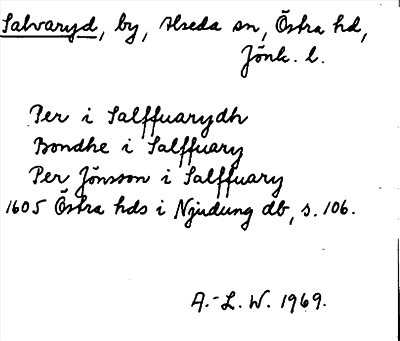 Salvaryd, by, Alseda sn, Östra hd,
Jönk. l.
Per i Salffuarydh
Bondhe i Salffuary
Per Jönsson i Salffuary
1605 Östra hds i Njudung db, s. 106.
A.-L. W. 1969.